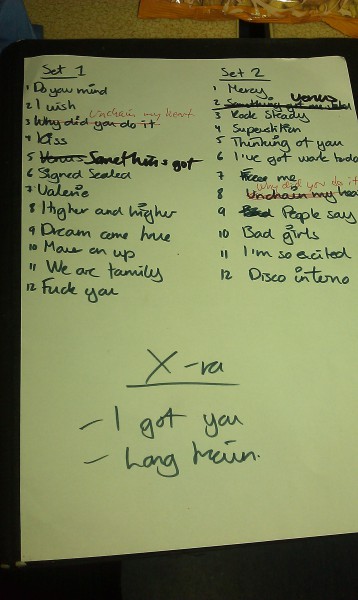 Set 1
1 Do you mind
2 I wish
Unchain my heart
3 Why did you do it
4 Kiss
5 Venus Somethin's got
6 Signed Sealed
7 Valerie
8 Higher and higher
9 Dream come true
10 Move on up
11 We are family
12 Fuck you
Set 2
1 Mercy
Venus
2 Something got me
3 Rock Steady
4 Superstition
5 Thinking of you
6 I've got work to do
7 me
why did you do it
8 Unchain my hea
9 People say
10 Bad girls
11 I'm so excited
12 Disco inferno
X-ra
- I got you
- Long train.